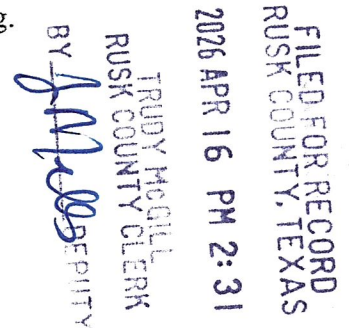 g.
FILED FOR RECORD
RUSK COUNTY, TEXAS
2026 APR 16 PM 2:31
TRUDY MCGILL
RUSK COUNTY CLERK
BY DEPUTY